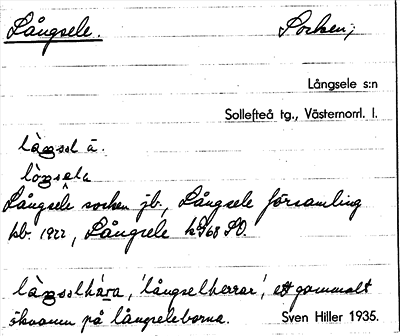 Långsele. Socken;
Långsele s:n
Sollefteå tg., Västernorrl. l.
Långsele socken jb., Långsele församling
kb. 1922, Långsele
'långselherrar', ett gammalt
öknamn på långseleborna. Sven Hiller 1935.